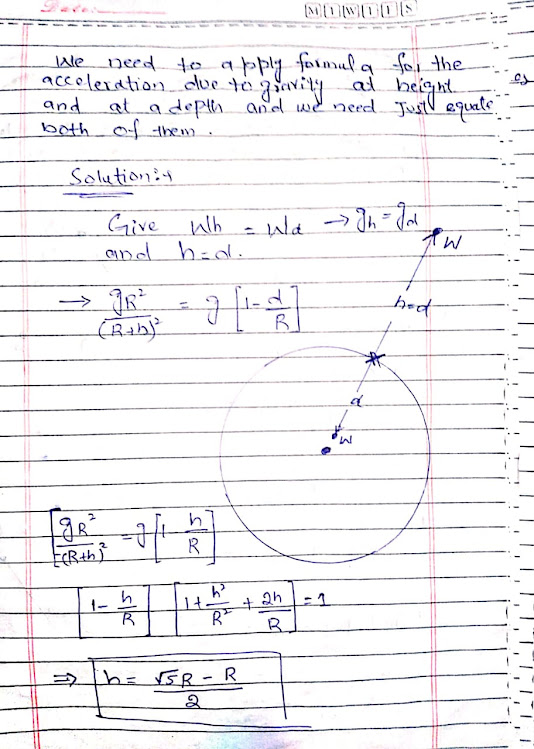 Date:
MTWTFSS
We need to apply formula for the
acceleration due to gravity at height
and at a depth and we need Just equate
both of them.
Solution:→
Give Wh = Wd → gh = gd
and h=d.
W
→ gR²/(R+h)² = g[1-d/R]
h=d
d
W
[gR²/(R+h)² = g[1-h/R]
[1-h/R] [1+h²/R²+2h/R] = 1
⇒ h = √5R - R/2